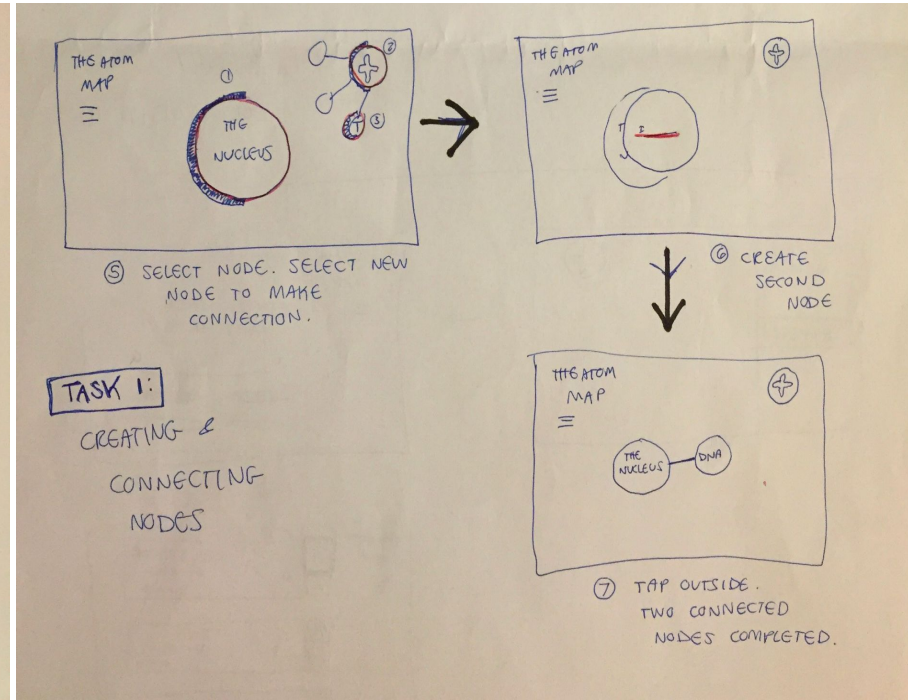 THE ATOM
MAP
①
THE
NUCLEUS
②
T ③
⑤ SELECT NODE. SELECT NEW
NODE TO MAKE
CONNECTION.
THE ATOM
MAP
T I
⑥ CREATE
SECOND
NODE
TASK 1:
CREATING &
CONNECTING
NODES
THE ATOM
MAP
THE
NUCLEUS
DNA
⑦ TAP OUTSIDE.
TWO CONNECTED
NODES COMPLETED.